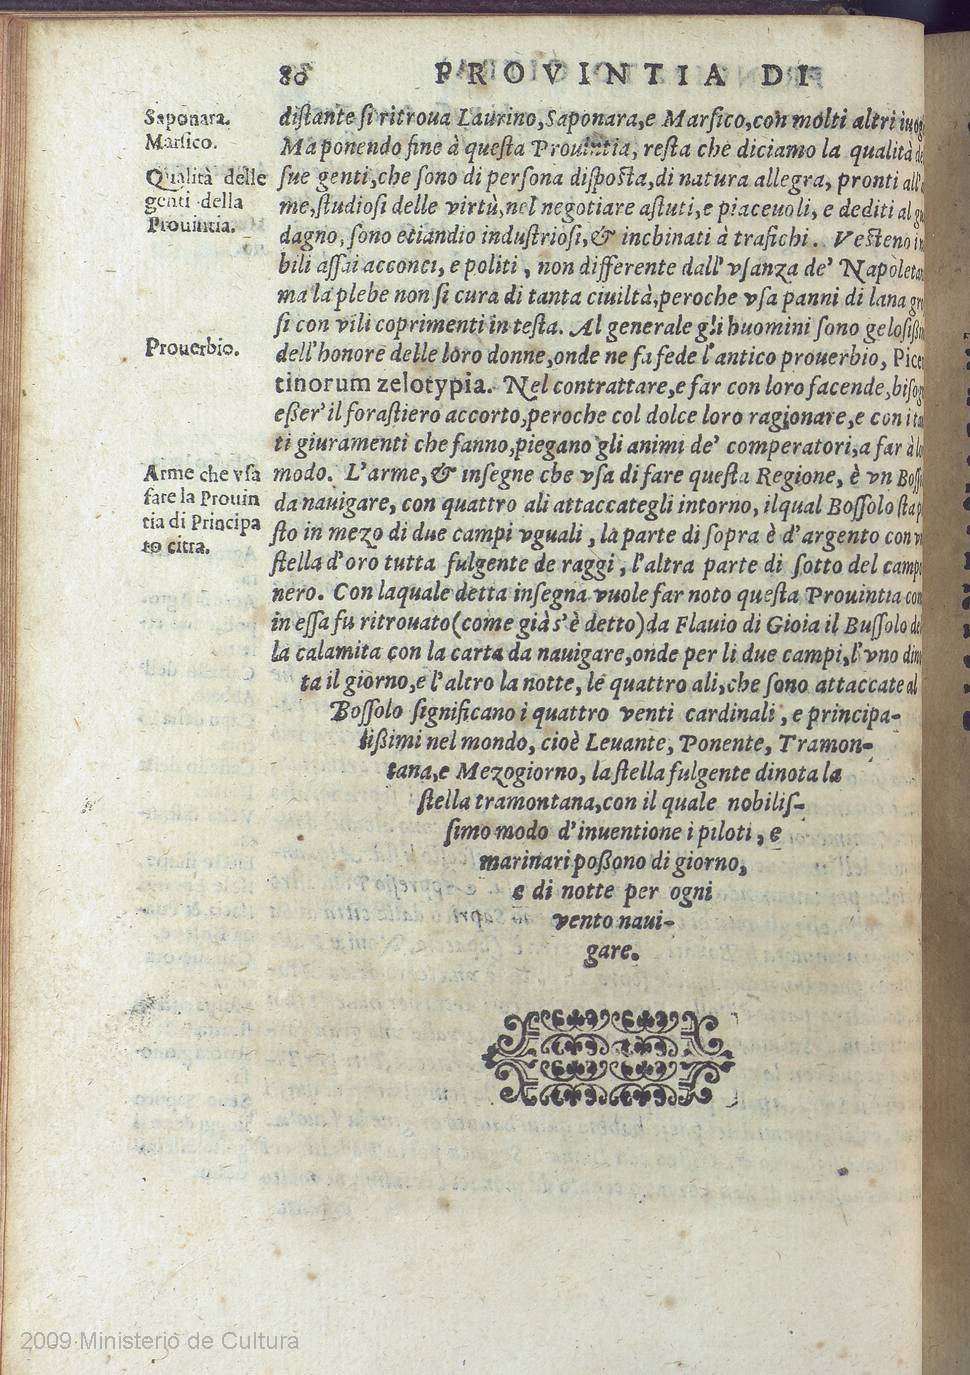 80 PROVINTIA DI
Saponara.
Marsico.
Qualità delle
genti della
Prouintia.
Prouerbio.
Arme che vsa
fare la Prouin
tia di Principa
to citra.
distante si ritroua Laurino, Saponara, e Marsico, con molti altri
Ma ponendo fine à questa Prouintia, resta che diciamo la qualità
sue genti, che sono di persona disposta, di natura allegra, pronti
me, studiosi delle virtù, nel negotiare astuti, e piaceuoli, e dediti al
dagno, sono etiandio industriosi, & inchinati à trafichi. Vesteno
bili assai acconci, e politi, non differente dall' vsanza de'
ma la plebe non si cura di tanta ciuiltà, peroche vsa panni di lana
si con vili coprimenti in testa. Al generale gli huomini sono
dell'honore delle loro donne, onde ne fa fede l'antico prouerbio,
tinorum zelotypia. Nel contrattare, e far con loro facende,
eßer' il forastiero accorto, peroche col dolce loro ragionare, e con
ti giuramenti che fanno, piegano gli animi de' comperatori, a far à
modo. L'arme, & insegne che vsa di fare questa Regione, è vn
da nauigare, con quattro ali attaccategli intorno, ilqual Bossolo
sto in mezo di due campi vguali, la parte di sopra è d'argento con
stella d'oro tutta fulgente de raggi, l'altra parte di sotto del
nero. Con laquale detta insegna vuole far noto questa Prouintia
in essa fu ritrouato (come già s'è detto) da Flauio di Gioia il Bussolo
la calamita con la carta da nauigare, onde per li due campi, l'vno
ta il giorno, e l'altro la notte, le quattro ali, che sono attaccate al
Bossolo significano i quattro venti cardinali, e principa-
lißimi nel mondo, cioè Leuante, Ponente, Tramon-
tana, e Mezogiorno, la stella fulgente dinota la
stella tramontana, con il quale nobilis-
simo modo d'inuentione i piloti, e
marinari poßono di giorno,
e di notte per ogni
vento naui-
gare.
2009 Ministerio de Cultura